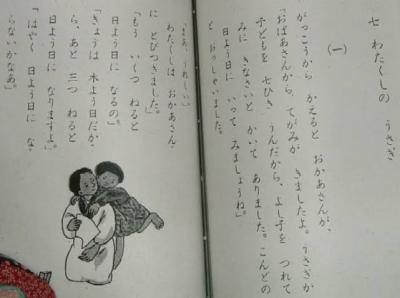 七 わたくしの うさぎ
(一)
がっこうから かえると おかあさんが、
「おばあさんから てがみが きましたよ。うさぎが
子どもを 七ひき うんだから、よし子を つれて
みに きなさいと かいて ありました。こんどの
日よう日に いって みましょうね。」
と、おっしゃいました。
「まあ、うれしい。」
わたくしは おかあさん
に とびつきました。
「もう いくつ ねると
日よう日に なるの。」
「きょうは 水よう日だか
ら、あと 三つ ねると
日よう日に なりますよ。」
「はやく 日よう日に な
らないかなあ。」